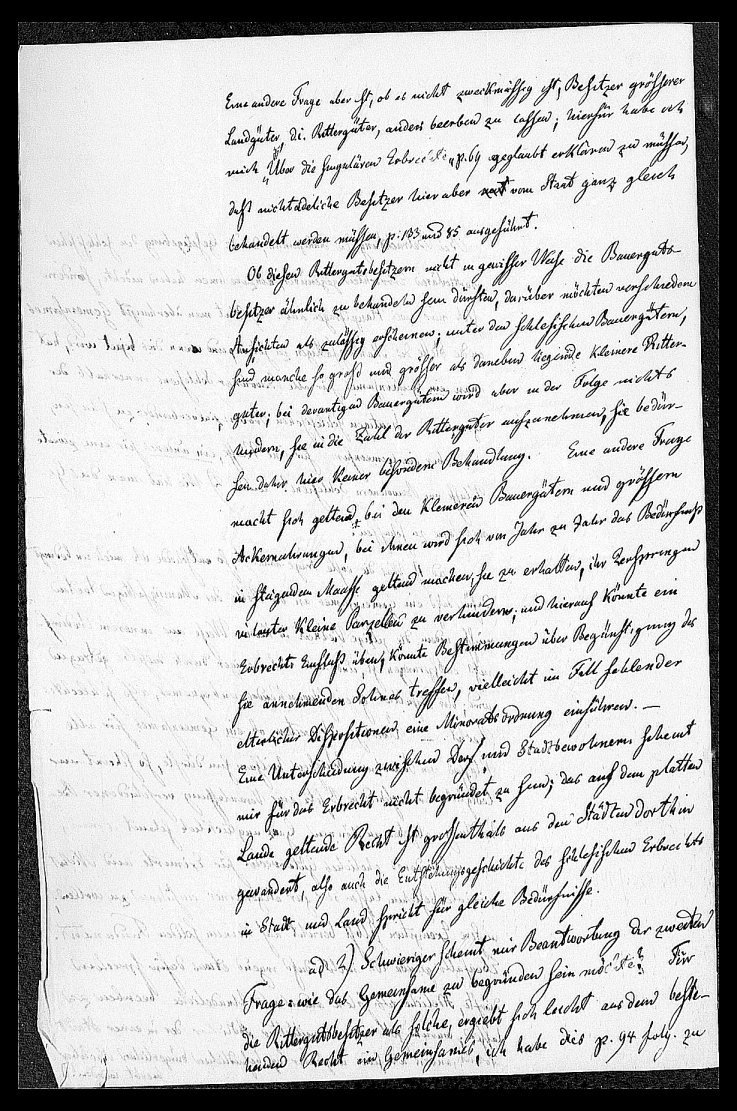 Eine andere Frage aber ist, ob es nicht zweckmässig ist, Besitzer grösserer
Landgüter, d.i. Rittergüter, anders beerben zu lassen; hierfür habe ich
mich "Über die singulären Erbrechte" p. 69 geglaubt erklären zu müssen,
daß nichtadeliche Besitzer hier aber vom Staat ganz gleich
behandelt werden müssen, p. 133 und 85 ausgeführt.
Ob diesen Rittergutsbesitzern nicht in gewisser Weise die Bauerguts-
besitzer ähnlich zu behandeln sein dürften, darüber möchten verschiedene
Ansichten als zulässig erscheinen; unter den schlesischen Bauergütern,
sind manche so groß und grösser als daneben liegende kleinere Ritter-
güter; bei derartigen Bauergütern wird aber in der Folge nichts
hindern, sie in die Zahl der Rittergüter aufzunehmen, sie bedür-
fen daher hier keiner besondern Behandlung. Eine andere Frage
macht sich geltend bei den kleineren Bauergütern und grössern
Ackernahrungen, bei ihnen wird sich von Jahr zu Jahr das Bedürfniß
in steigendem Maasse geltend machen, sie zu erhalten, ihr Zerspringen
in lauter kleine Parzellen zu verhindern, und hierauf könnte ein
Erbrecht Einfluß üben, könnte Bestimmungen über Begünstigung des
sie annehmenden Sohnes treffen, vielleicht im Fall fehlender
elterlicher Dispositionen eine Minoratsordnung einführen. —
Eine Unterscheidung zwischen Dorf und Stadtbewohnern scheint
mir für das Erbrecht nicht begründet zu sein; das auf dem platten
Lande geltende Recht ist grossentheils aus den Städten dorthin
gewandert, also auch die Entstehungsgeschichte des schlesischen Erbrechts
in Stadt und Land spricht für gleiche Bedürfnisse.
ad 2) Schwieriger scheint mir Beantwortung der zweiten
Frage: wie das Gemeinsame zu begründen sein möchte? Für
die Rittergutsbesitzer als solche, ergiebt sich leicht aus dem beste-
henden Recht ein Gemeinsames, ich habe dies p. 94 folg. zu